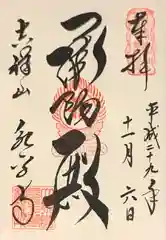 奉拝
平成二十九年
十一月六日
承陽殿
吉祥山
永平寺